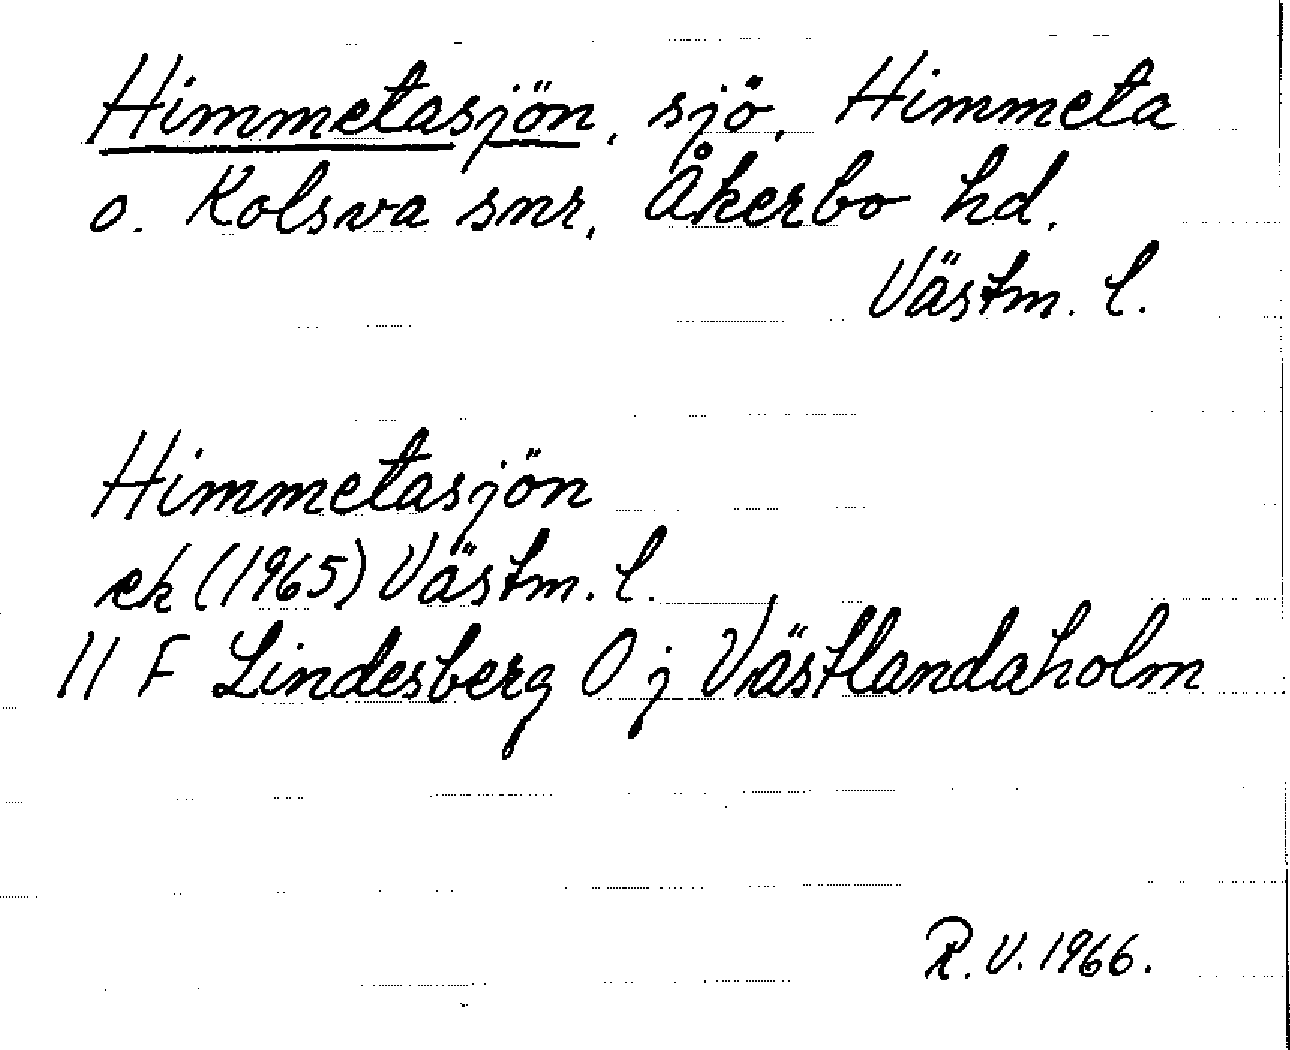 Himmetasjön, sjö, Himmeta
o. Kolsva snr, Åkerbo hd.
Västm. l.
Himmetasjön
ek (1965) Västm. l.
11 F Lindesberg 0 j Västlandaholm
R.V. 1966.